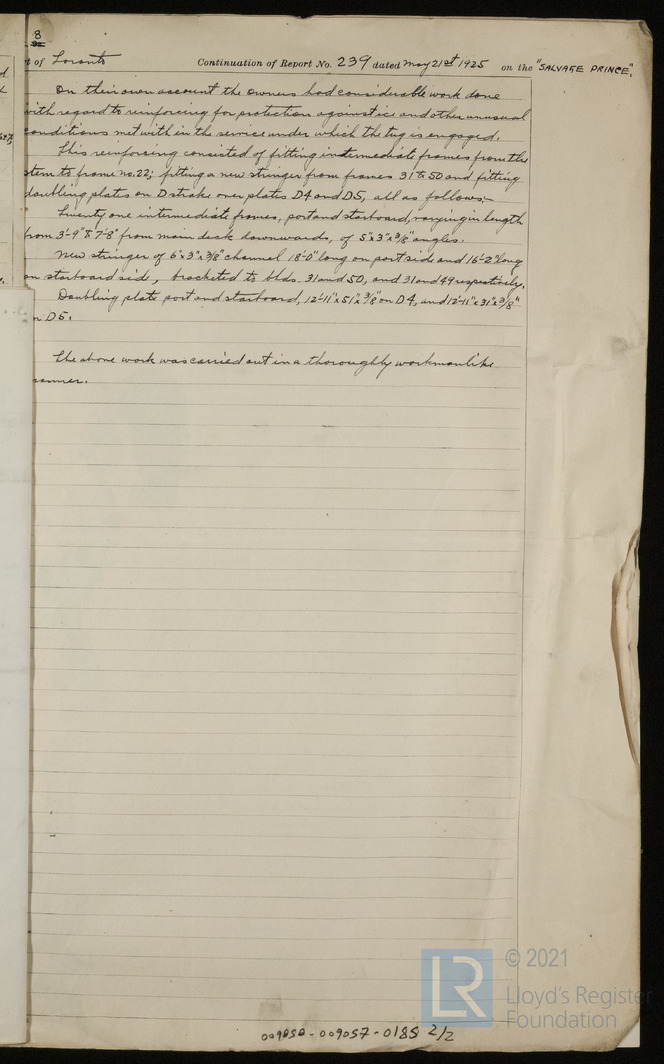 8
t of Toronto Continuation of Report No. 239 dated May 21st 1925 on the "SALVAGE PRINCE".
On their own account the owners had considerable work done
with regard to reinforcing for protection against ice and other unusual
conditions met with in the service under which the tug is engaged.
This reinforcing consisted of fitting intermediate frames from the
stem to frame no. 22; fitting a new stringer from frames 31 to 50 and fitting
doubling plates on D strake over plates D4 and D5, all as follows:-
Twenty one intermediate frames, port and starboard, varying in length
from 3'-9" to 7'-8" from main deck downwards, of 5"x3"x3/8" angles.
New stringer of 6"x3"x3/8" channel 18'-0" long on port side and 16'-2" long
on starboard side, bracketed to blds. 31 and 50, and 31 and 49 respectively.
Doubling plate port and starboard, 12'-11"x51"x3/8" on D4, and 12'-11"x31"x3/8"
n D5.
The above work was carried out in a thoroughly workmanlike
manner.
009050-009057-0185 2/2
LR
© 2021
Lloyd's Register
Foundation